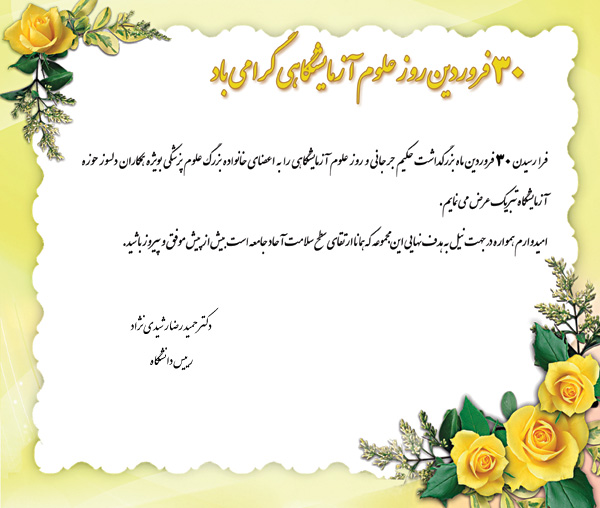 ۳۰ فروردین روز علوم آزمایشگاهی گرامی باد
فرا رسیدن ۳۰ فروردین ماه بزرگداشت حکیم جرجانی و روز علوم آزمایشگاهی را به اعضای خانواده بزرگ علوم پزشکی بویژه همکاران دلسوز حوزه
آزمایشگاه تبریک عرض می نمایم .
امیدوارم همواره در جهت نیل به هدف نهایی این مجموعه که همانا ارتقای سطح سلامت آحاد جامعه است بیش از پیش موفق و پیروز باشید.
دکتر حمیدرضا رشیدی نژاد
رییس دانشگاه